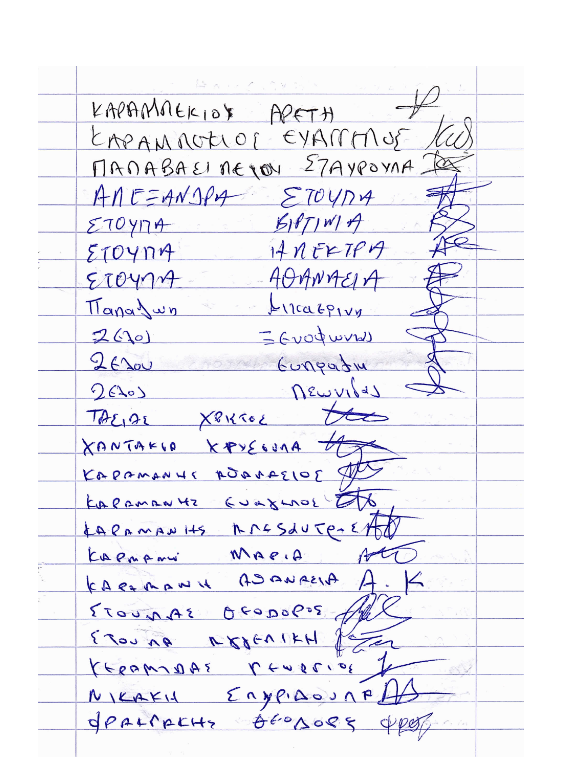 ΚΑΡΑΜΠΕΚΙΟΥ ΑΡΕΤΗ
ΚΑΡΑΜΠΕΚΙΟΣ ΕΥΑΓΓΕΛΟΣ
ΠΑΠΑΒΑΣΙΛΕΙΟΥ ΣΤΑΥΡΟΥΛΑ
ΑΛΕΞΑΝΔΡΑ ΣΤΟΥΠΑ
ΣΤΟΥΠΑ ΒΙΡΓΙΝΙΑ
ΣΤΟΥΠΑ ΗΛΕΚΤΡΑ
ΣΤΟΥΠΑ ΑΘΑΝΑΣΙΑ
Αικατερινη
Ζέλος Ξενοφωνας
Ζέλου Ευπραξια
Ζέλος Λεωνιδας
ΤΑΣΙΑΣ ΧΡΗΣΤΟΣ
ΧΑΝΤΑΚΙΑ ΧΡΥΣΟΥΛΑ
ΚΑΡΑΜΑΝΗΣ ΑΘΑΝΑΣΙΟΣ
ΚΑΡΑΜΑΝΗΣ
ΚΑΡΑΜΑΝΗΣ
ΜΑΡΙΑ
ΚΑΡΑΜΑΝΗ ΑΘΑΝΑΣΙΑ Α. Κ
ΣΤΟΥΠΑΣ ΘΕΟΔΟΡΟΣ
ΣΤΟΥΠΑ ΑΓΓΕΛΙΚΗ
ΚΕΡΑΜΙΔΑΣ ΓΕΩΡΓΙΟΣ
ΝΙΚΑΚΗ ΣΠΥΡΙΔΟΥΛΑ